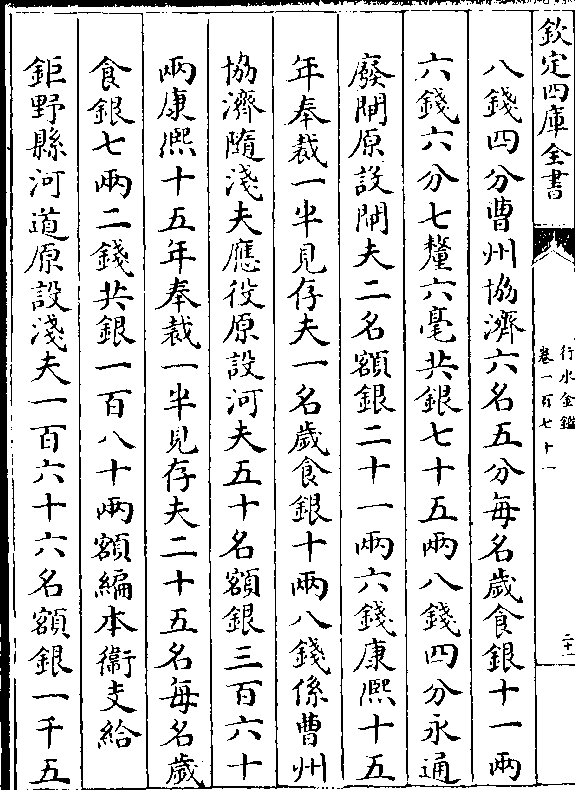 欽定四庫全書
行水金鑑
卷一百七十一
二十一
八錢四分曹州協濟六名五分每名歲食銀十一兩
六錢六分七釐六毫共銀七十五兩八錢四分永通
廢閘原設閘夫二名額銀二十一兩六錢康熙十五
年奉裁一半見存夫一名歲食銀十兩八錢係曹州
協濟隨淺夫應役原設河夫五十名額銀三百六十
兩康熙十五年奉裁一半見存夫二十五名每名歲
食銀七兩二錢共銀一百八十兩額編本衞支給
鉅野縣河道原設淺夫一百六十六名額銀一千五